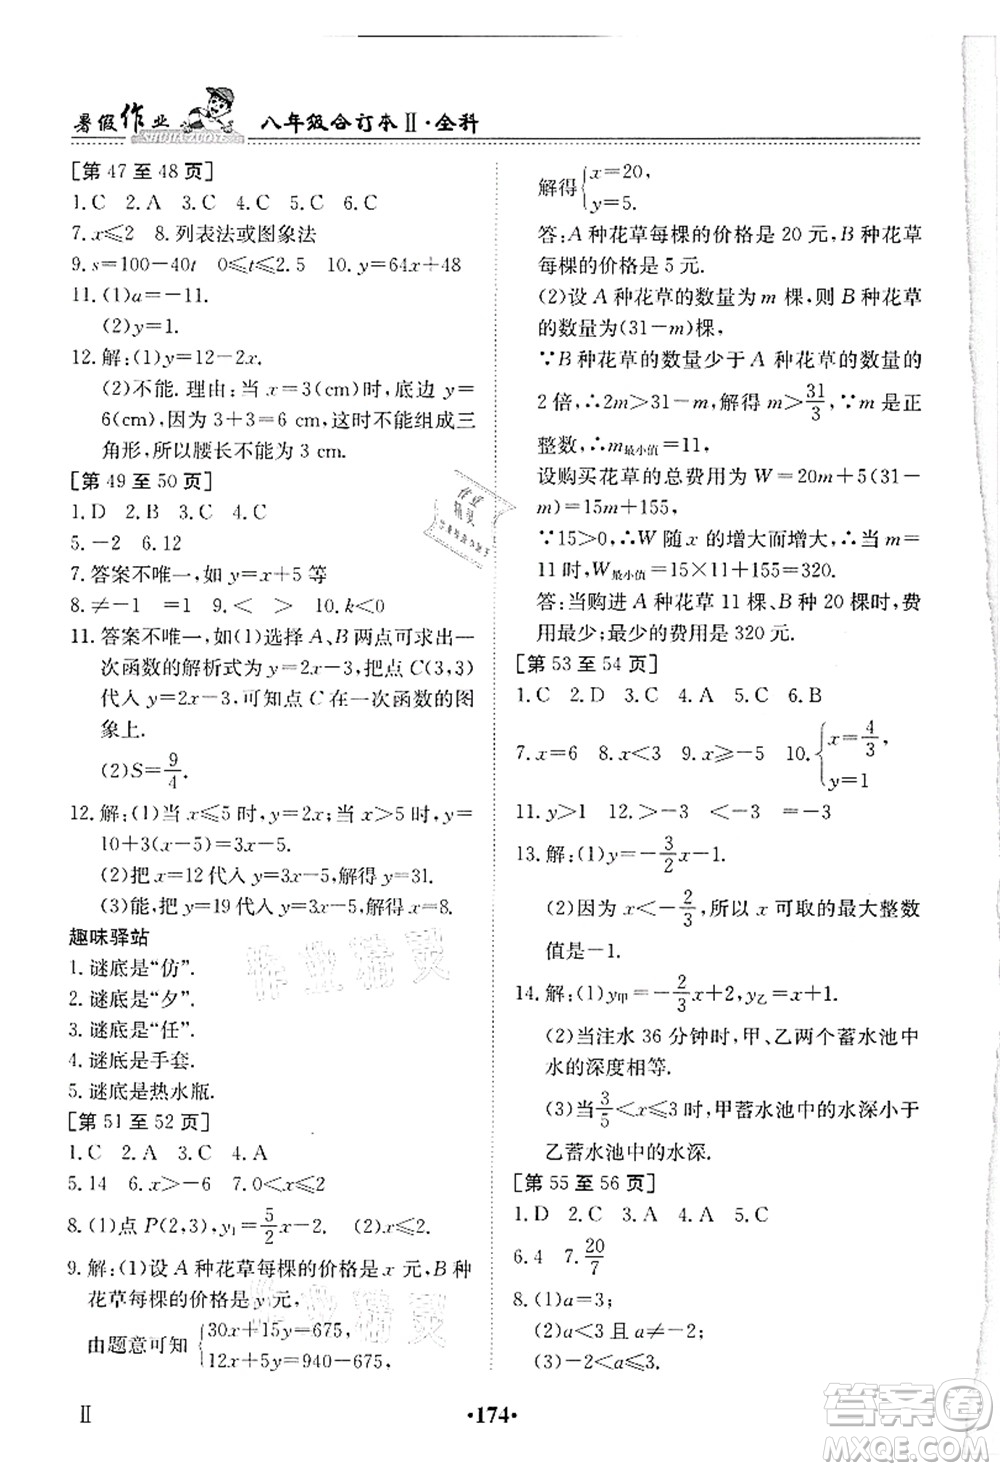 暑假作业 八年级合订本Ⅱ·全科
SHUJIAZUOYE
[第 47 至 48 页]
1. C 2. A 3. C 4. B 5. C 6. B
7. x≤2 8. 列表法或图象法
9. s=100-40t 0≤t≤2.5 10. y=64x+48
11. (1)a=-11.
(2)y=1.
12. 解:(1)y=12-2x.
(2)不能. 理由:当 x=3(cm)时,底边 y=
6(cm),因为 3+3=6 cm,这时不能组成三
角形,所以腰长不能为 3 cm.
[第 49 至 50 页]
1. D 2. B 3. C 4. C
5. -2 6. 12
7. 答案不唯一,如 y=x+5 等
8. ≠-1 =1 9. < > 10. k<0
11. 答案不唯一,如(1)选择 A、B 两点可求出一
次函数的解析式为 y=2x-3,把点 C(3,3)
代入 y=2x-3,可知点 C 在一次函数的图
象上.
(2)S=9/4.
12. 解:(1)当 x≤5 时,y=2x;当 x>5 时,y=
10+3(x-5)=3x-5.
(2)把 x=12 代入 y=3x-5,解得 y=31.
(3)能,把 y=19 代入 y=3x-5,解得 x=8.
趣味驿站
1. 谜底是“仿”.
2. 谜底是“夕”.
3. 谜底是“任”.
4. 谜底是手套.
5. 谜底是热水瓶.
[第 51 至 52 页]
1. C 2. A 3. C 4. A
5. 14 6. x>-6 7. ②③
8. (1)点 P(2,3),y₁=5/2x-2. (2)x≤2.
9. 解:(1)设 A 种花草每棵的价格是 x 元,B 种
花草每棵的价格是 y 元,
由题意可知{30x+15y=675,
12x+5y=940-675,
解得{x=20,
y=5.
答:A 种花草每棵的价格是 20 元,B 种花
草每棵的价格是 5 元.
(2)设 A 种花草的数量为 m 棵,则 B 种花草
的数量为(31-m)棵,
∵B 种花草的数量少于 A 种花草的数量的
2 倍,∴2m>31-m,解得 m>31/3,∵m 是正
整数,∴m最小值=11,
设购买花草的总费用为 W=20m+5(31-
m)=15m+155,
∵15>0,∴W 随 x 的增大而增大,当 m=
11 时,W最小值=15×11+155=320(元).
答:当购进 A 种花草 11 棵、B 种 20 棵时,费
用最少;最少的费用是 320 元.
[第 53 至 54 页]
1. C 2. D 3. C 4. A 5. C 6. B
7. x=6 8. x<3 9. x≥-5 10. {x=4/3,
y=1
11. y>1 12. >-3 <-3 =-3
13. 解:(1)y=-3/2x-1.
(2)因为 x<-2/3,所以 x 可取的最大整数
值是-1.
14. 解:(1)y甲=-2/3x+2,y乙=x+1.
(2)当注水 36 分钟时,甲、乙两个蓄水池中
水的深度相等.
(3)当3/5<x≤3 时,甲蓄水池中的水深小于
乙蓄水池中的水深.
[第 55 至 56 页]
1. D 2. C 3. A 4. A 5. C
6. 4 7. 20/7
8. (1)a=3;
(2)a<3 且 a≠-2;
(3)-2≤a≤5.
Ⅱ
·174·
作业精灵
作业精灵
作业精灵
答案圈
MXQE.COM